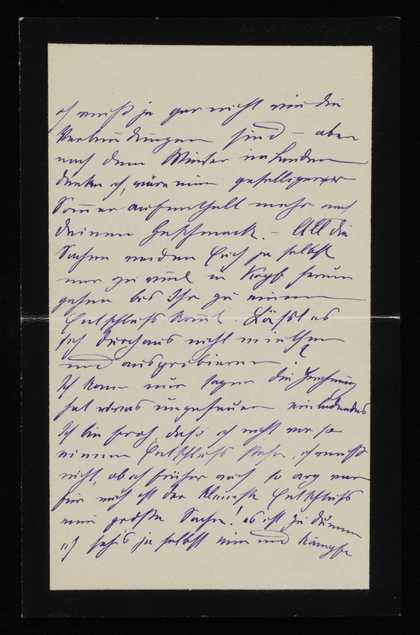 ich weiß ja gar nicht wie die
Verbindungen sind – aber
nach dem Winter
denke ich, wäre ein geselligerer
Sommeraufenthalt mehr nach
deinem Geschmack. – All die
Sachen werden Euch ja selbst
nur zu viel im Kopf herum
gehen bis Ihr zu einem
Entschluß kommt. Läßt es
sich durchaus nicht
und ausprobieren?
Ich kann nur sagen die
hat etwas ungeheuer einladendes
Ich bin froh, daß ich nicht vor so
einem Entschluß stehe, ich weiß
nicht, ob ich früher auch so arg war
für mich ist der kleinste Entschluß
eine große Sache! es ist zu dumm
ich seh's ja selbst ein und kämpfe